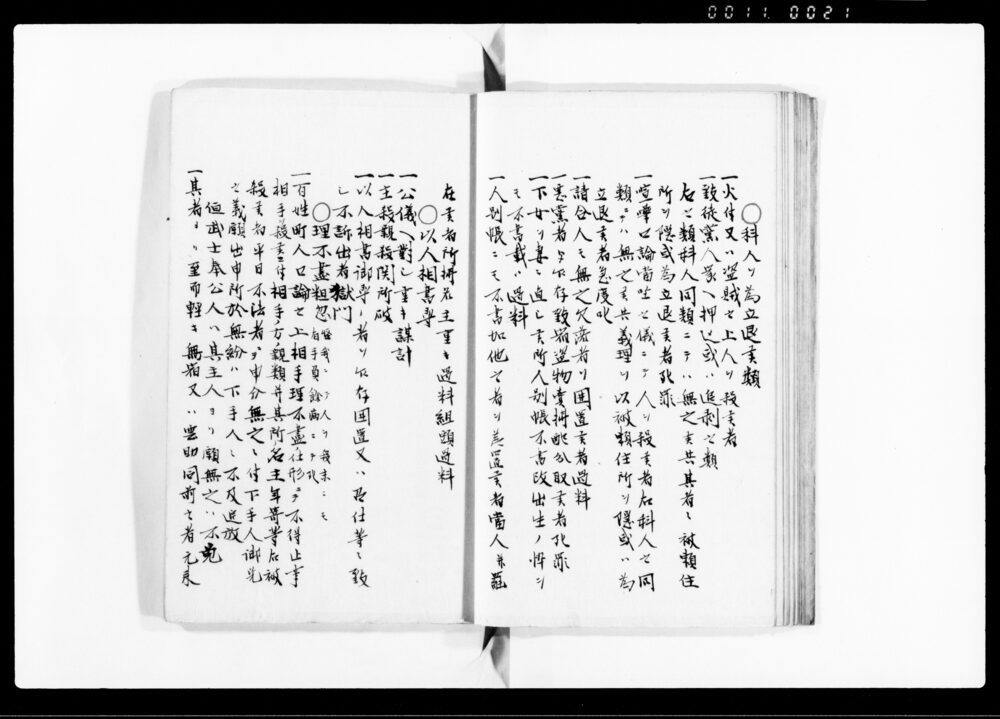 0011 0021
〇科人ヲ為立退者類
一火付又ハ盗賊之上人ヲ殺者
一致徒党人家ヘ押込或ハ追剥之類
右之類科人同類ニテハ無之共其者ニ被頼住
所ヲ隠或為立退者死罪
一喧嘩口論当座之儀ニテ人ヲ殺者右科人之同
類ニハ無之共義理ヲ以被頼住所ヲ隠或ハ為
立退者急度叱
一請合人ニ無之欠落者ヲ囲置者過料
一悪党者ヲ乍存致宿盗物売捌配分取者死罪
一下女ヲ妻ニ直し所人別帳不書改出生ノ忰ヲ
モ不書載ハ過料
一人別帳ニモ不書加他之者ヲ差置者当人并
在者所払名主重キ過料組頭過料
〇以人相書尋
一公儀ヘ対し重キ謀計
一主殺親殺関所破
一以人相書御尋之者ヲ乍存囲置又ハ召仕等ニ致
し不訴出者獄門
〇理不尽粗忽
一百姓町人口論之上相手理不尽仕形ニテ不得止事
相手殺害ニ付相手ノ方親類并其所名主年寄等右被
殺者平日不法者ニテ申分無之ニ付下手人御免
之義願出申所於無紛ハ下手人ニ不及追放
但武士奉公人ハ其主人ヨリ願無之ハ不免
一其者ヨリ至而軽キ無宿又ハ雲助同前之者元来